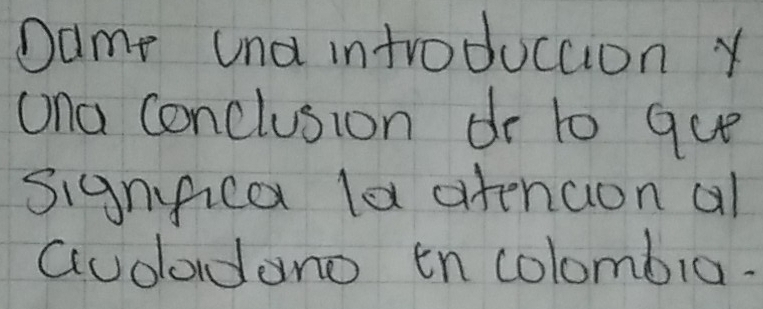 Dame una introduccion y
una conclusion de lo que
significa la atencion al
ciudadano en colombia.